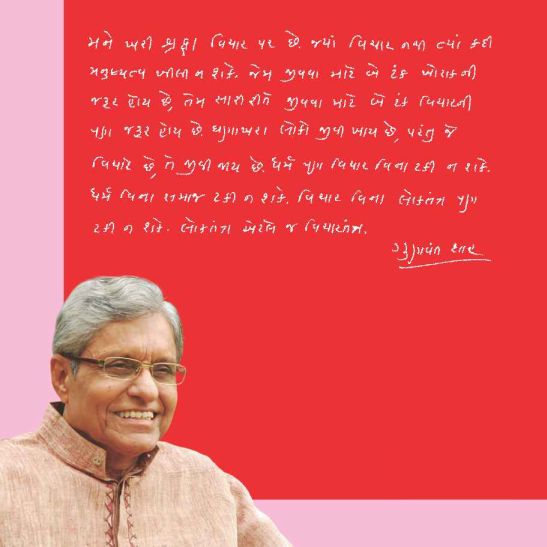 મને ખરી શ્રદ્ધા વિચાર પર છે. જ્યાં વિચાર નથી ત્યાં કદી
મનુષ્યત્વ ખીલી ન શકે. જેમ જીવવા માટે બે ટંક ખોરાકની
જરૂર હોય છે, તેમ સારી રીતે જીવવા માટે બે ટંક વિચારની
પણ જરૂર હોય છે. ઘણાખરા લોકો જીવી ખાય છે, પરંતુ જે
વિચારે છે, તે જીવી જાય છે. ધર્મ પણ વિચાર વિના ટકી ન શકે.
ધર્મ વિના સમાજ ટકી ન શકે. વિચાર વિના લોકતંત્ર પણ
ટકી ન શકે. લોકતંત્ર એટલે જ વિચારતંત્ર.
ગુણવંત શાહ